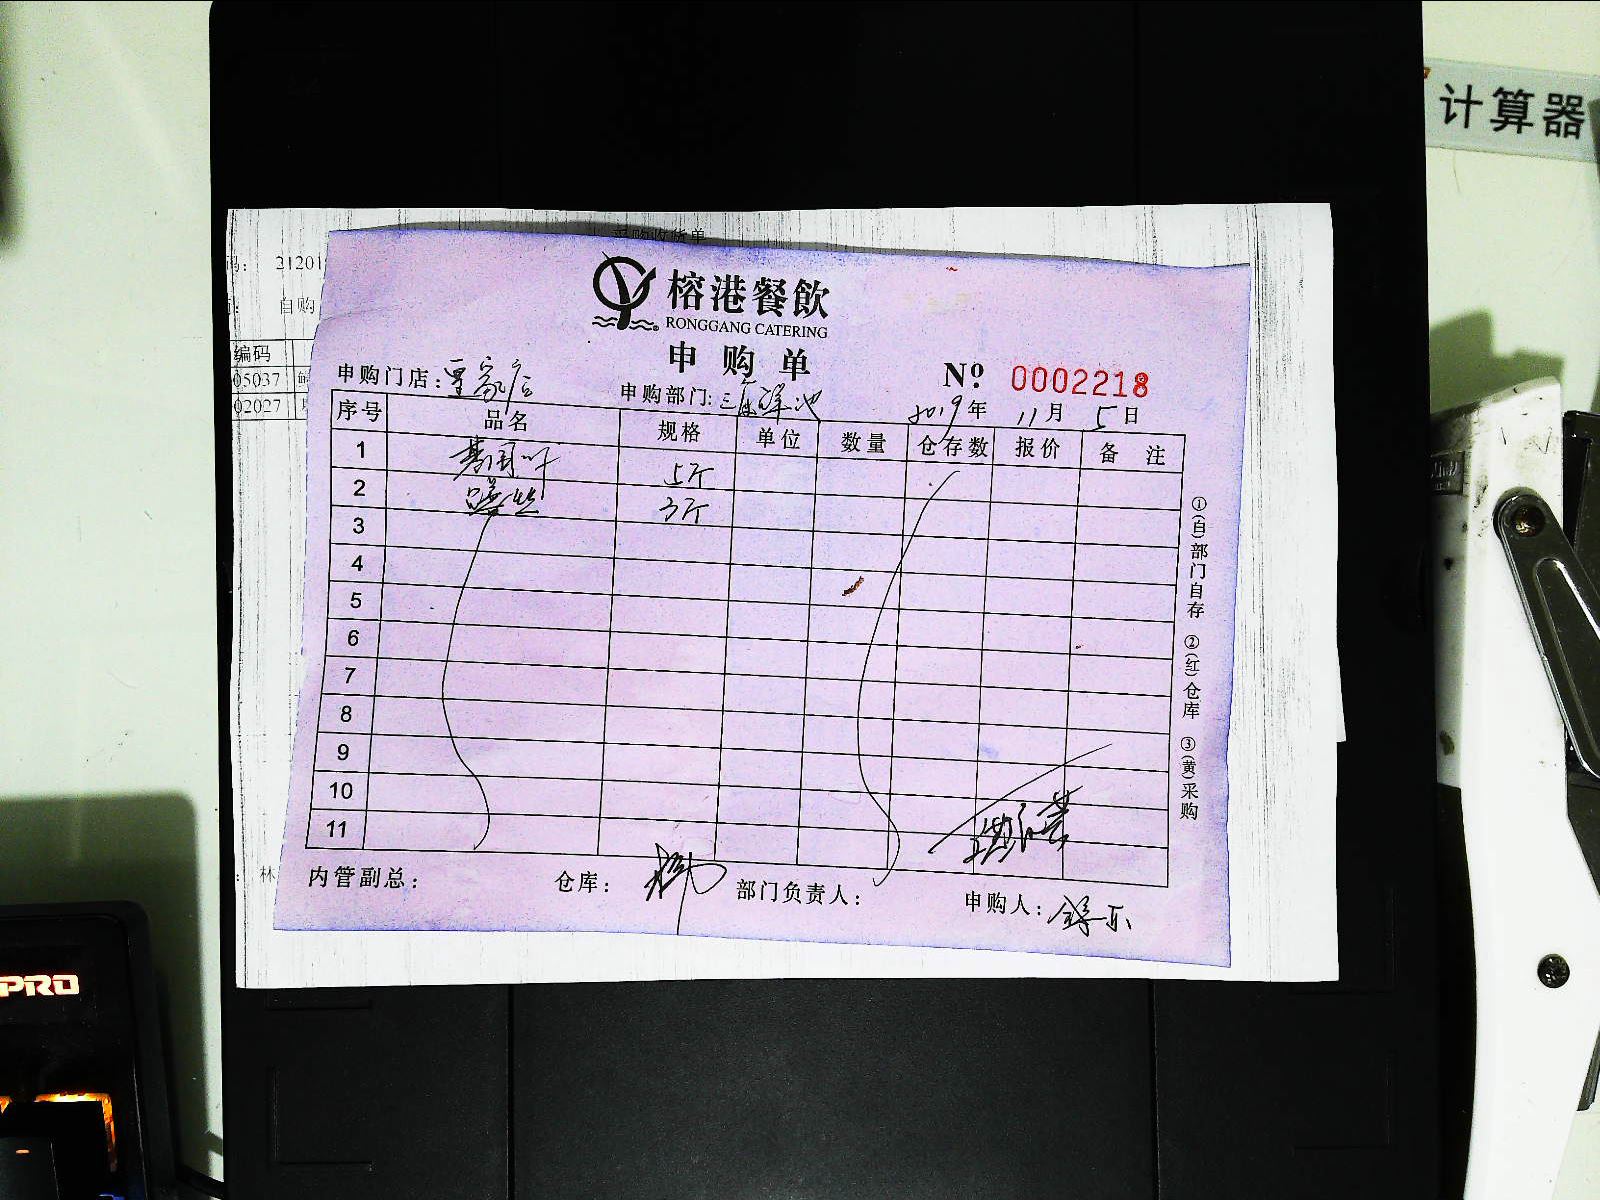 计算器
采购收货单
码： 21201
自购
编码
05037
02027
林
榕港餐飲
RONGGANG CATERING
申购单
№ 0002218
申购门店：
申购部门：
2019年 11月 5日
序号 品名 规格 单位 数量 仓存数 报价 备 注
1 基围虾 5斤
2 3斤
3
4
5
6
7
8
9
10
11
①(白)部门自存 ②(红)仓库 ③(黄)采购
内管副总： 仓库： 部门负责人： 申购人：
PRO